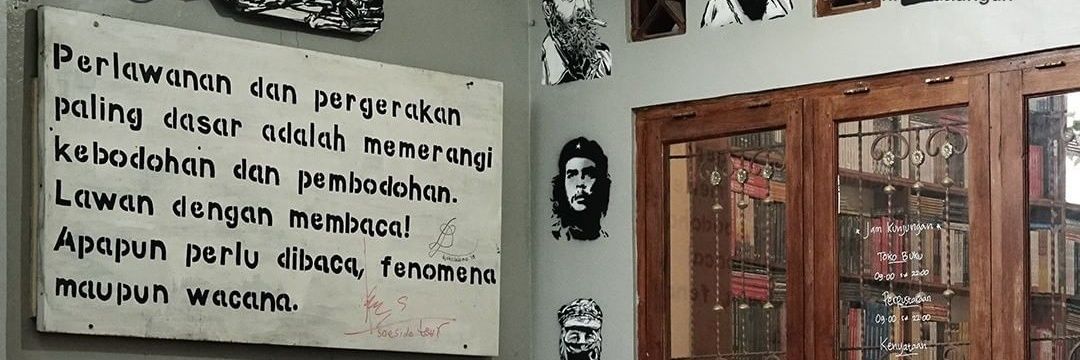 Perlawanan dan pergerakan
paling dasar adalah memerangi
kebodohan dan pembodohan.
Lawan dengan membaca!
Apapun perlu dibaca, fenomena
maupun wacana.
* Jam Kunjungan *
Toko Buku
09.00 sd 22.00
Perpustakaan
09.00 sd 22.00
Kenyataan